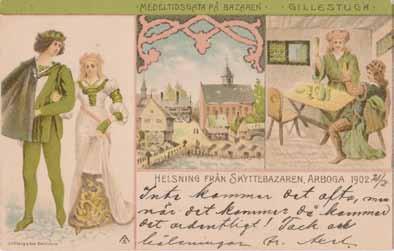 MEDELTIDSGATA PÅ BAZAREN · GILLESTUGA ·
HELSNING FRÅN SKYTTEBAZAREN, ARBOGA 1902
Inte kommer det ofta, men
när det kommer så kommer
det ordentligt! Tack och
helsningar fr.